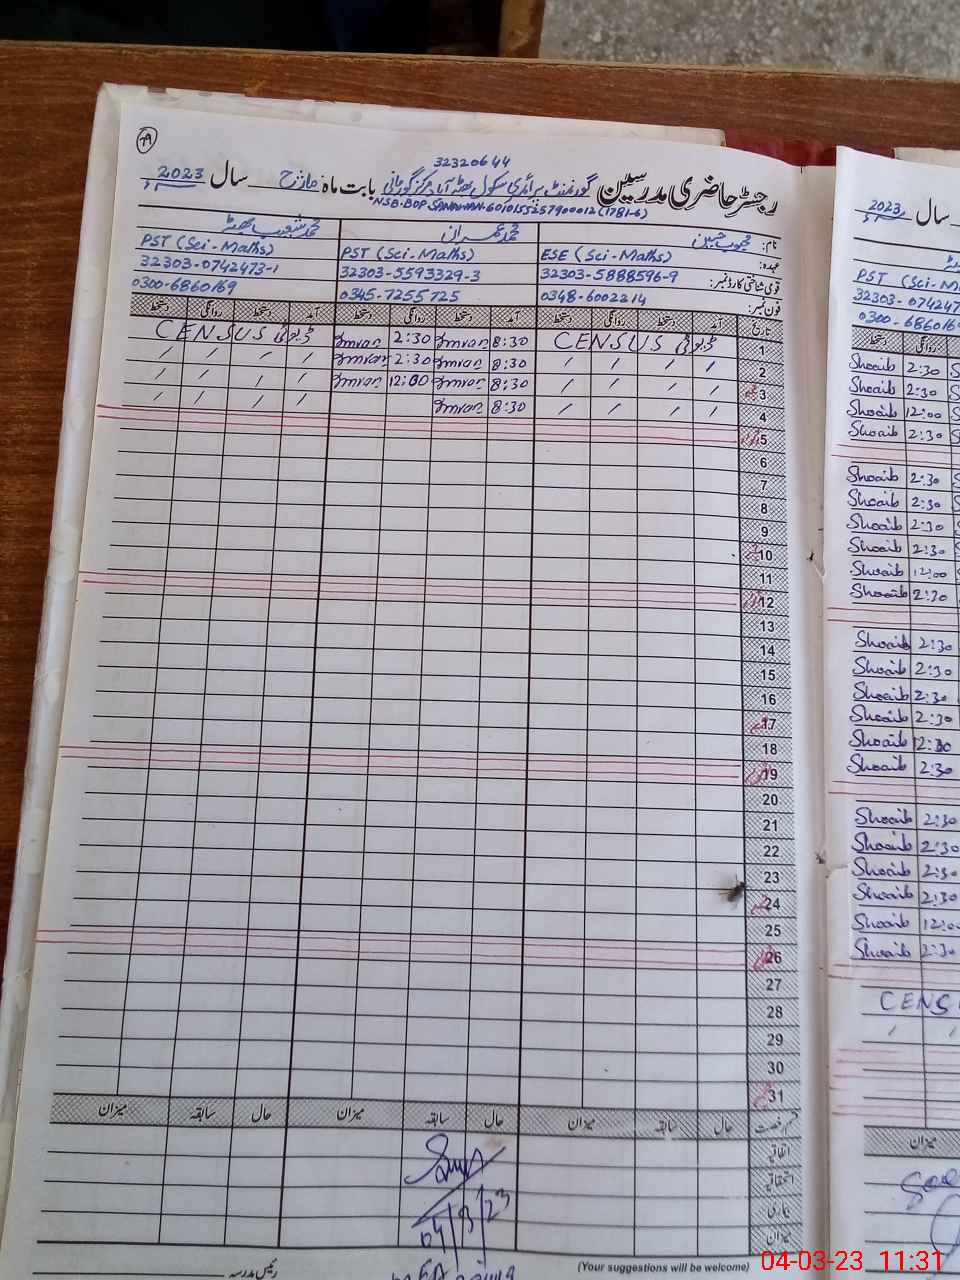 79
32320644
رجسٹر حاضری مدرسین گورنمنٹ پرائمری سکول بھٹہ آباد مرکز گورمانی بابت ماہ مارچ سال 2023
نام: محبوب حسین محمد عمران محمد شعیب بھٹہ
عہدہ: ESE (Sci-Maths) PST (Sci-Maths) PST (Sci-Maths)
قومی شناختی کارڈ نمبر: 32303-5888596-9 32303-5593329-3 32303-0742473-1
فون نمبر: 0348-6002214 0345-7255725 0300-6860169
تاریخ آمد دستخط روانگی دستخط آمد دستخط روانگی دستخط آمد دستخط روانگی دستخط
1 CENSUS ڈیوٹی 8:30 Imran 2:30 Imran CENSUS ڈیوٹی
2 / / / / 8:30 Imran 2:30 Imran / / / /
3 جمعہ / / / / 8:30 Imran 12:00 Imran / / / /
4 / / / / 8:30 Imran / / / /
5 اتوار
6
7
8
9
10 جمعہ
11
12 اتوار
13
14
15
16
17 جمعہ
18
19 اتوار
20
21
22
23
24 جمعہ
25
26 اتوار
27
28
29
30
31 جمعہ
قسم رخصت حال سابقہ میزان حال سابقہ میزان حال سابقہ میزان
اتفاقی
استحقاقی
بیماری
میزان
04/3/23
رئیس مدرسہ
(Your suggestions will be welcome)
2023 سال
PST (Sci-M
32303-07424
0300-686016
دستخط روانگی
Shoaib 2:30
Shoaib 2:30
Shoaib 12:00
Shoaib 2:30
Shoaib 2:30
Shoaib 2:30
Shoaib 2:30
Shoaib 2:30
Shoaib 12:00
Shoaib 2:30
Shoaib 2:30
Shoaib 2:30
Shoaib 2:30
Shoaib 2:30
Shoaib 12:00
Shoaib 2:30
Shoaib 2:30
Shoaib 2:30
Shoaib 2:30
Shoaib 2:30
Shoaib 12:00
Shoaib 2:30
CENS
میزان
04-03-23 11:31